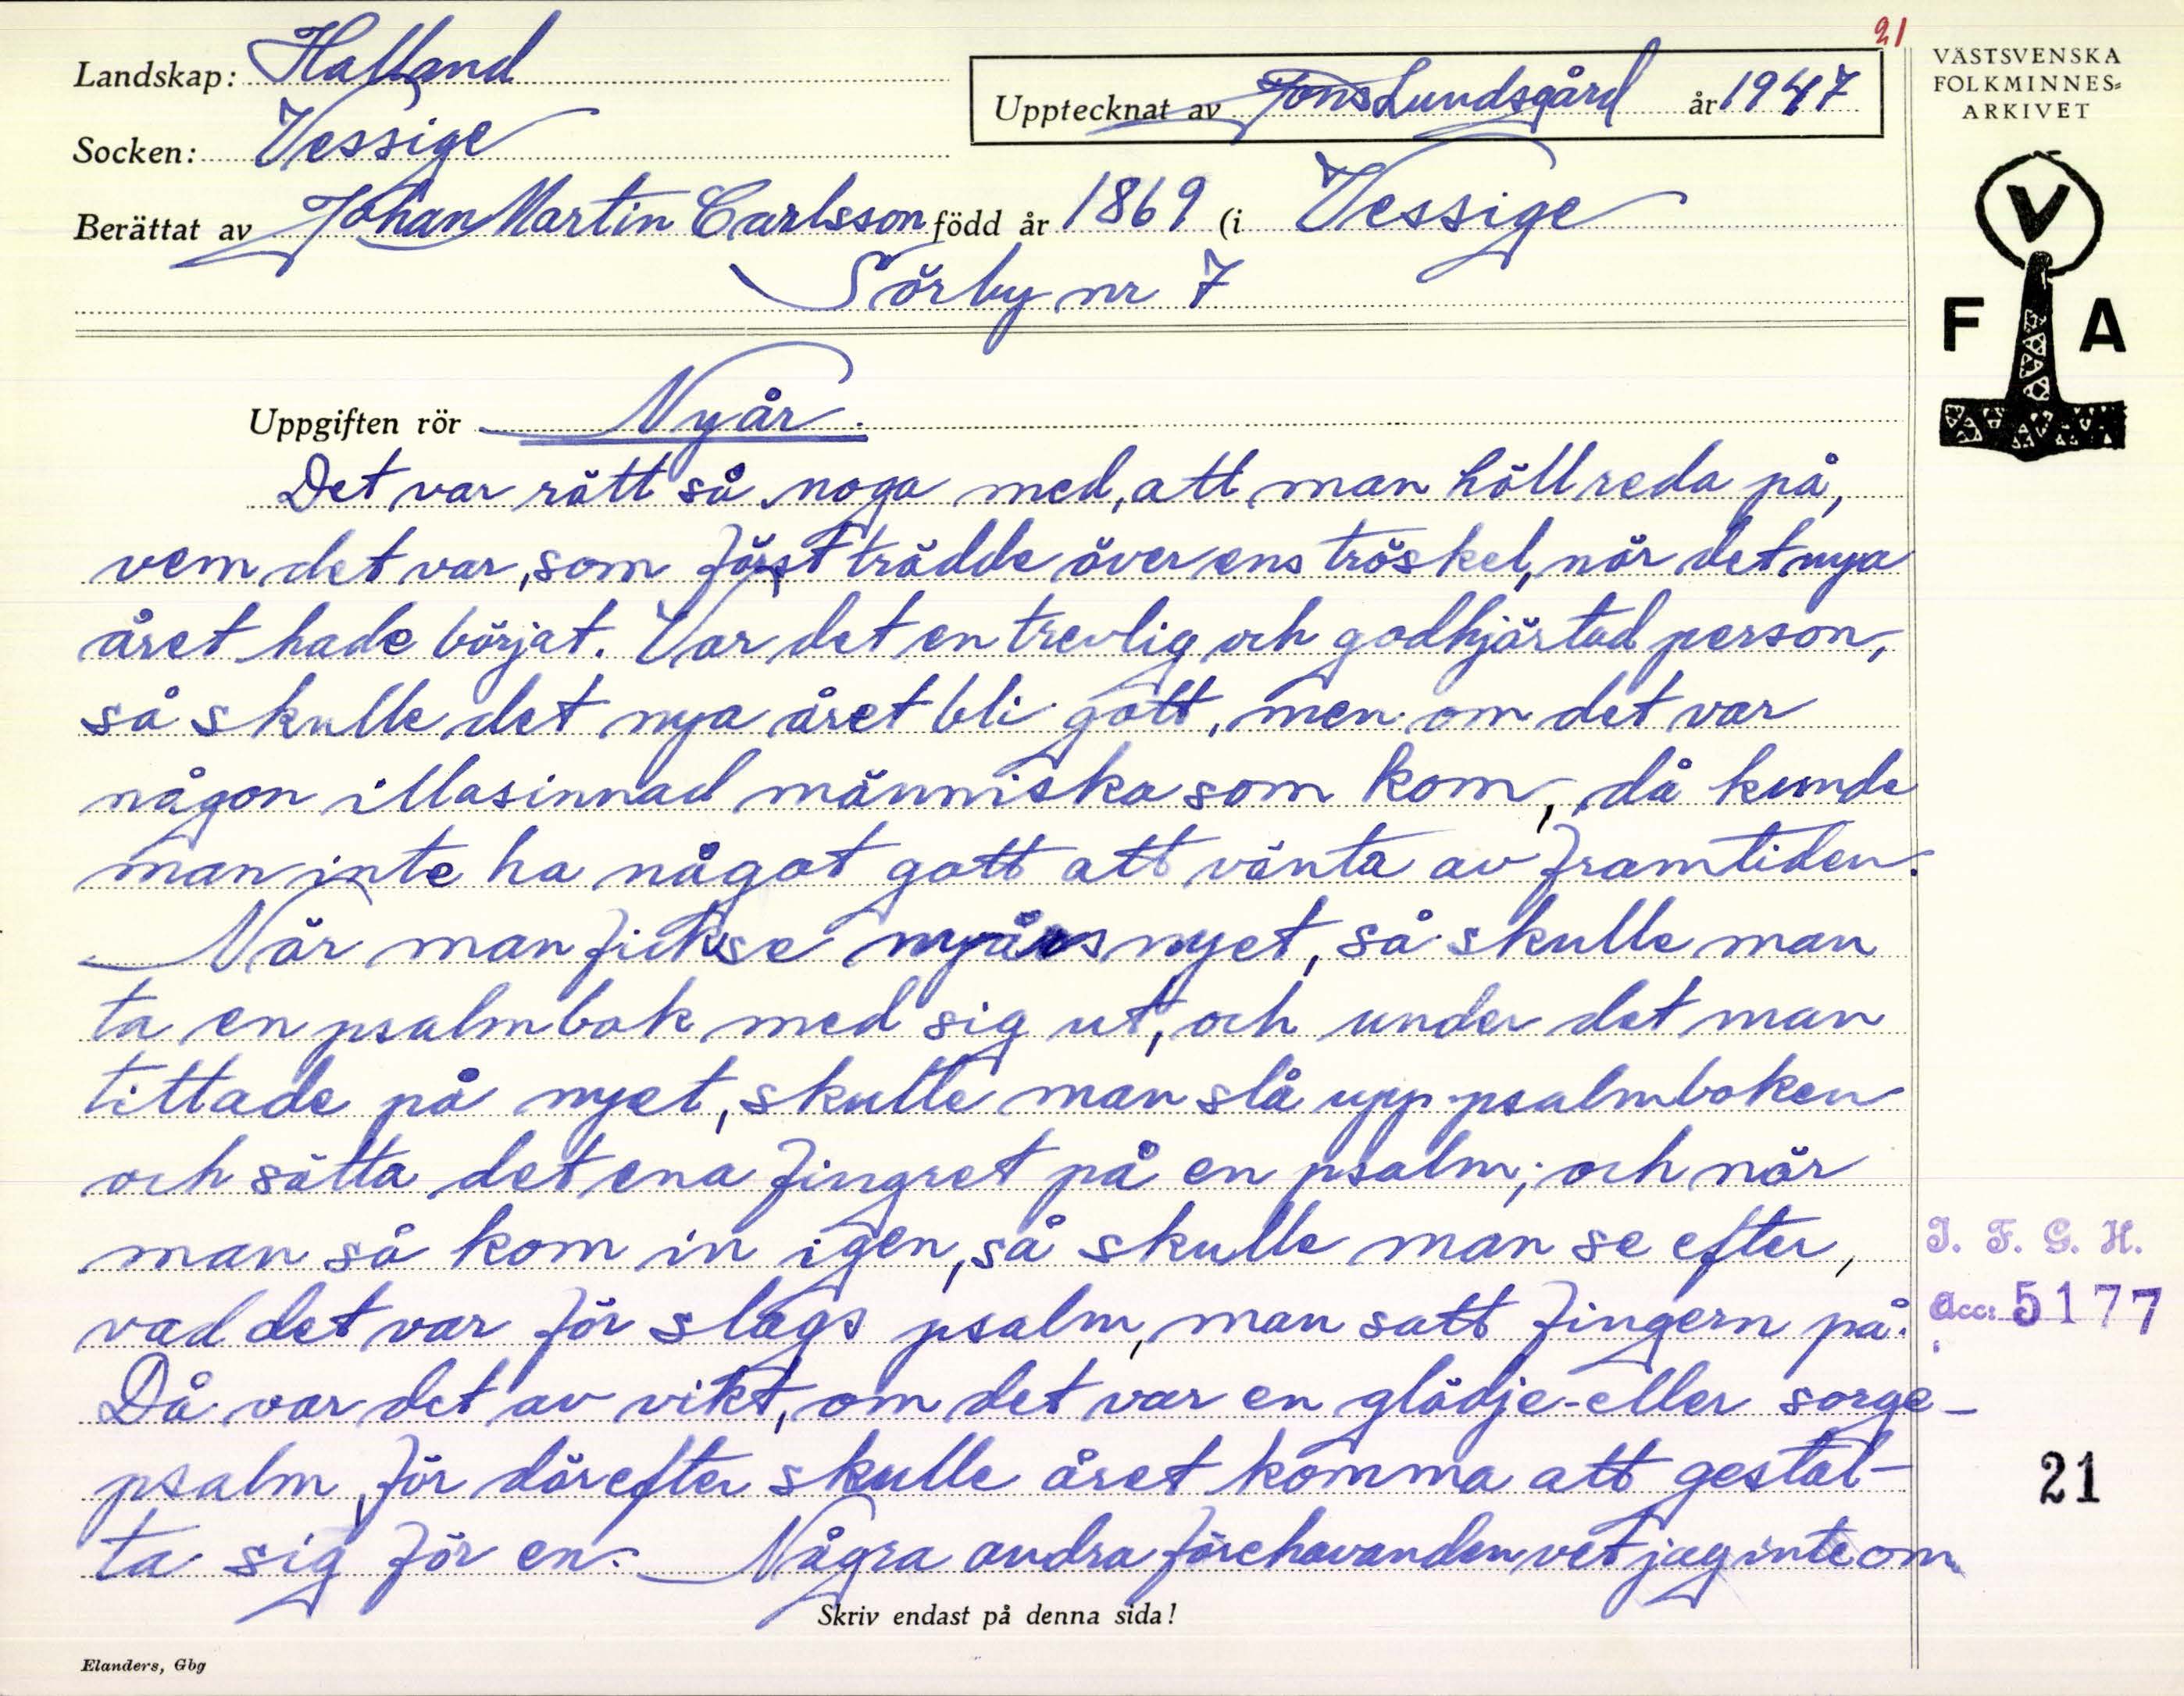 21
Landskap: Halland
Upptecknat av Jöns Lundsgård år 1947
Socken: Vessige
Berättat av Johan Martin Carlsson född år 1869 (i Vessige
Sörby nr 7
VÄSTSVENSKA
FOLKMINNES-
ARKIVET
V
F A
Uppgiften rör Nyår.
Det var rätt så noga med, att man höll reda på,
vem det var, som först trädde över ens tröskel, när det nya
året hade börjat. Var det en trevlig och godhjärtad person,
så skulle det nya året bli gott, men om det var
någon illasinnad människa som kom, då kunde
man inte ha något gott att vänta av framtiden.
När man fick se nyårsnyet, så skulle man
ta en psalmbok med sig ut, och under det man
tittade på nyet, skulle man slå upp psalmboken
och sätta det ena fingret på en psalm; och när
man så kom in igen, så skulle man se efter,
vad det var för slags psalm, man satt fingern på.
Då var det av vikt, om det var en glädje- eller sorge-
psalm, för därefter skulle året komma att gestal-
ta sig för en. Några andra förehavanden vet jag inte om
I. F. G. H.
Acc: 5177
21
Skriv endast på denna sida!
Elanders, Gbg